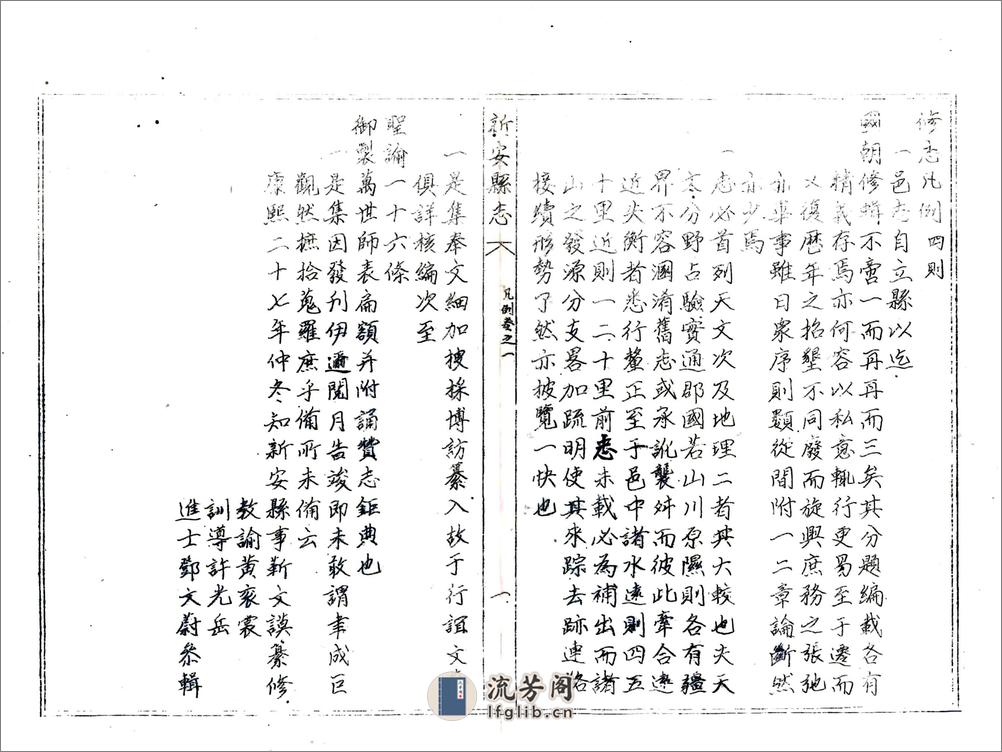 修志凡例 四則
一邑志自立縣以迄
國朝修輯不啻一而再再而三矣其分題編載各有
精義存焉亦何容以私意輒行更易至于遷而
又復歷年之招墾不同廢而旋興庶務之張弛
亦
事雖日衆序則類從間附一二章論斷然
亦少焉
一志必首列天文次及地理二者其大較也夫天
文分野占驗實通郡國若山川原隰則各有疆
界不容溷淆舊志或承訛襲舛而彼此牽合遠
近失衡者悉行釐正至于邑中諸水遠則四五
十里近則一二十里前志未載必為補出而諸
山之發源分支畧加疏明使其來踪去跡連絡
接續形勢了然亦披覽一快也
新安縣志
凡例卷之一
一
一是集奉文細加搜採博訪纂入故于行誼文
俱詳核編次至
聖諭一十六條
御製萬世師表扁額并附誦贊志鉅典也
一是集因發刊伊邇閱月告竣即未敢謂聿成巨
觀然摭拾蒐羅庶乎備所未備云
康熙二十七年仲冬知新安縣事靳文謨纂修
教諭黃袞裳
訓導許光岳
進士鄧文蔚參輯
流芳阁
lfglib.cn